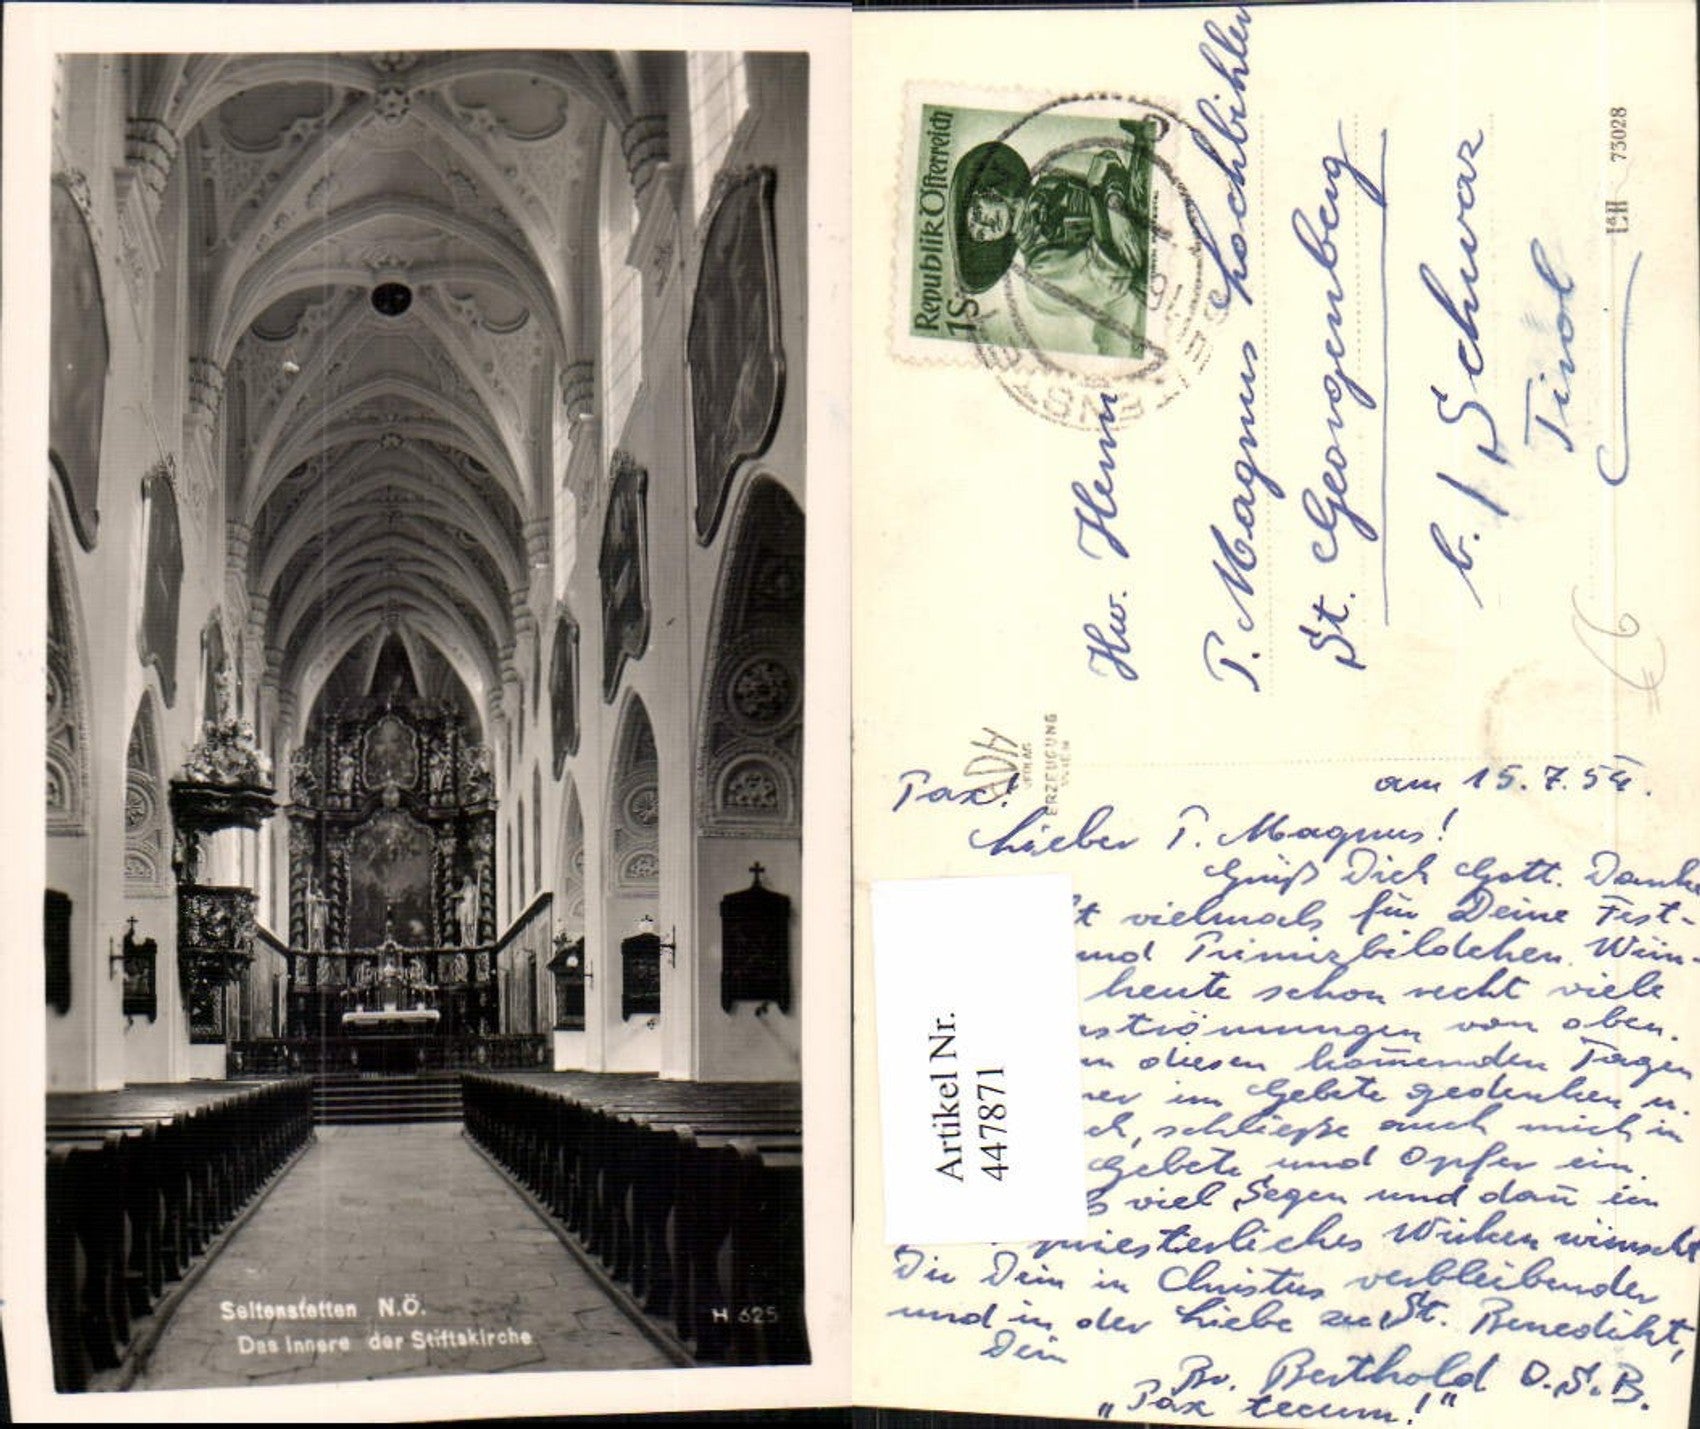 Seitenstetten N.Ö.
Das Innere der Stiftskirche
H 625
Republik Österreich
1S
Hw. Herrn
P. Magnus Hochbihler
St. Georgenberg
b./ Schwaz
Tirol
L&H 73028
VERLAG
ERZEUGUNG
Artikel Nr.
447871
Pax!
am 15.7.54.
Lieber P. Magnus!
Grüß Dich Gott. Danke
vielmals für Deine Fest-
und Primizbildchen. Wün-
heute schon recht viele
von oben.
diesen kom̄enden Tagen
im Gebete gedenken u.
schließe auch mich in
Gebete und Opfer ein.
viel Segen und dan̄ ein
priesterliches Wirken wünscht
Dir Dein in Christus verbleibender
und in der Liebe zu St. Benedikt,
Dein
Br. Berthold O.S.B.
„Pax tecum!"